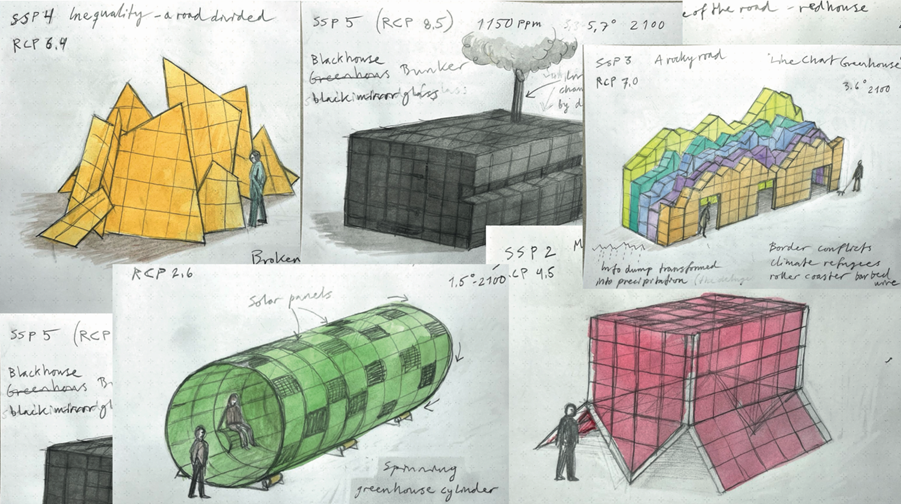 SSP4 Inequality - a road divided
RCP 6,4
Broken
SSP 5 (RCP 8.5) 1150 ppm 5,7° 2100
Blackhouse
Greenhous Bunker
black mirror glass
e of the road - redhouse
SSP 3 A rocky road "Line Chart Greenhouse"
RCP 7.0
3,6° 2100
Info dump transformed
into precipitation
Border conflicts
climate refugees
roller coaster barbed
wire
SSP 2 M
CP 4,5
RCP 2.6
1.5° -2100
Solar panels
Spinning
greenhouse cylinder
SSP 5 (RCP
Blackhouse
Greenhous B
black mirror gl